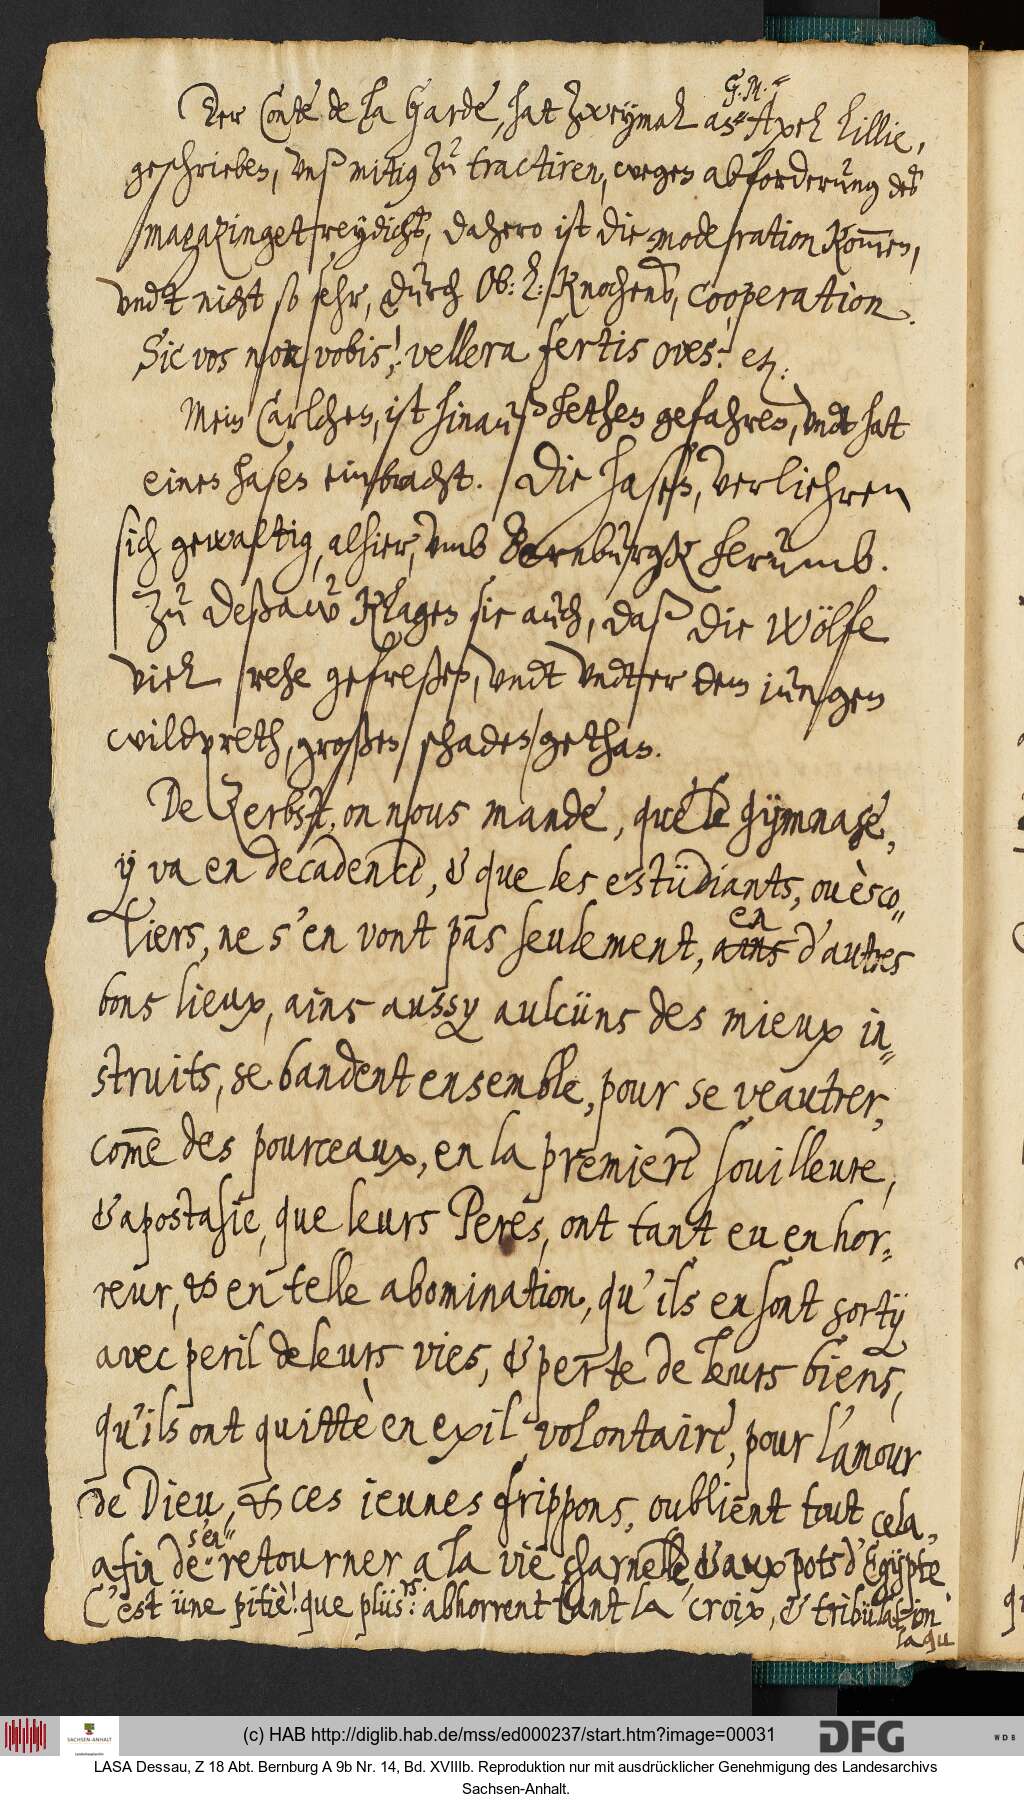 Der Conte de la Garde, hat zweymal an G. M. Axel Lillie,
geschrieben, unß mitig zu tractiren, wegen abforderung des
magazingetreydichts, dahero ist die moderation kom̅en,
undt nicht so sehr, durch Ob: L: Knochens, cooperation.
Sic vos non vobis,! vellera fertis oves:! etz:
Mein Carlchen, ist hinauß hetzen gefahren, undt hat
einen hasen einbracht. Die hasen, verliehren
sich gewaltig, alhier, umb Bernburgk herumb.
Zu Deßaw klagen sie auch, daß die Wölfe
viel rehe gefreßen, undt undter dem jungen
wildpreth, großen schaden gethan.
De Zerbst, on nous mande, que le Gÿmnase,
ÿ va en decadence, & que les estüdiants, ou èsco-
liers, ne s'en vont pas seulement, ains en d'autres
bons lieux, ains aussy aulcüns des mieux in-
struits, se bandent ensemble, pour se veautrer,
com̅e des pourceaux, en la premiere souilleure,
& apostasie, que leurs Peres, ont tant eu en hor-
reur, & en telle abomination, qu'ils en sont sortÿ
avec peril de leurs vies, & perte de leurs biens,
qu'ils ont quittè en exil volontaire, pour l'amour
de Dieu, & ces jeunes frippons, oublient tout cela,
afin de s'en retourner a la vie charnelle, & aux pots d'Egÿpte
C'est üne pitiè! que plüs.rs: abhorrent tant la croix, & tribülation
la qu
(c) HAB http://diglib.hab.de/mss/ed000237/start.htm?image=00031
SACHSEN-ANHALT
Landesarchiv
DFG
WDB
LASA Dessau, Z 18 Abt. Bernburg A 9b Nr. 14, Bd. XVIIIb. Reproduktion nur mit ausdrücklicher Genehmigung des Landesarchivs
Sachsen-Anhalt.